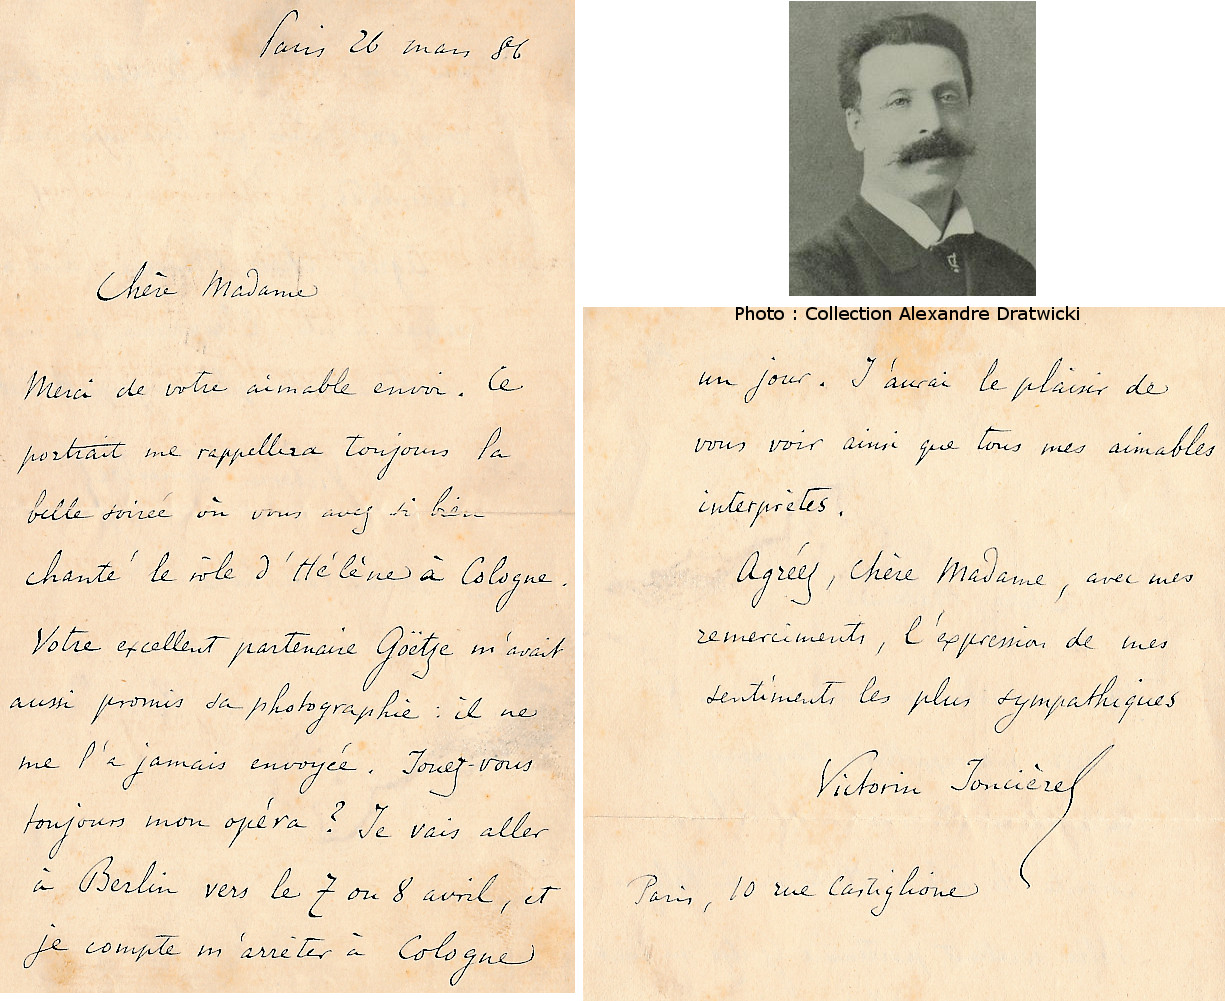 Paris 26 mars 86
Chère Madame
Merci de votre aimable envoi. Ce
portrait me rappellera toujours la
belle soirée où vous avez si bien
chanté le rôle d'Hélène à Cologne.
Votre excellent partenaire Göetze m'avait
aussi promis sa photographie : il ne
me l'a jamais envoyée. Jouez-vous
toujours mon opéra ? Je vais aller
à Berlin vers le 7 ou 8 avril, et
je compte m'arrêter à Cologne
Photo : Collection Alexandre Dratwicki
un jour. J'aurai le plaisir de
vous voir ainsi que tous mes aimables
interprètes.
Agréez, chère Madame, avec mes
remerciments, l'expression de mes
sentiments les plus sympathiques
Victorin Joncières
Paris, 10 rue Castiglione